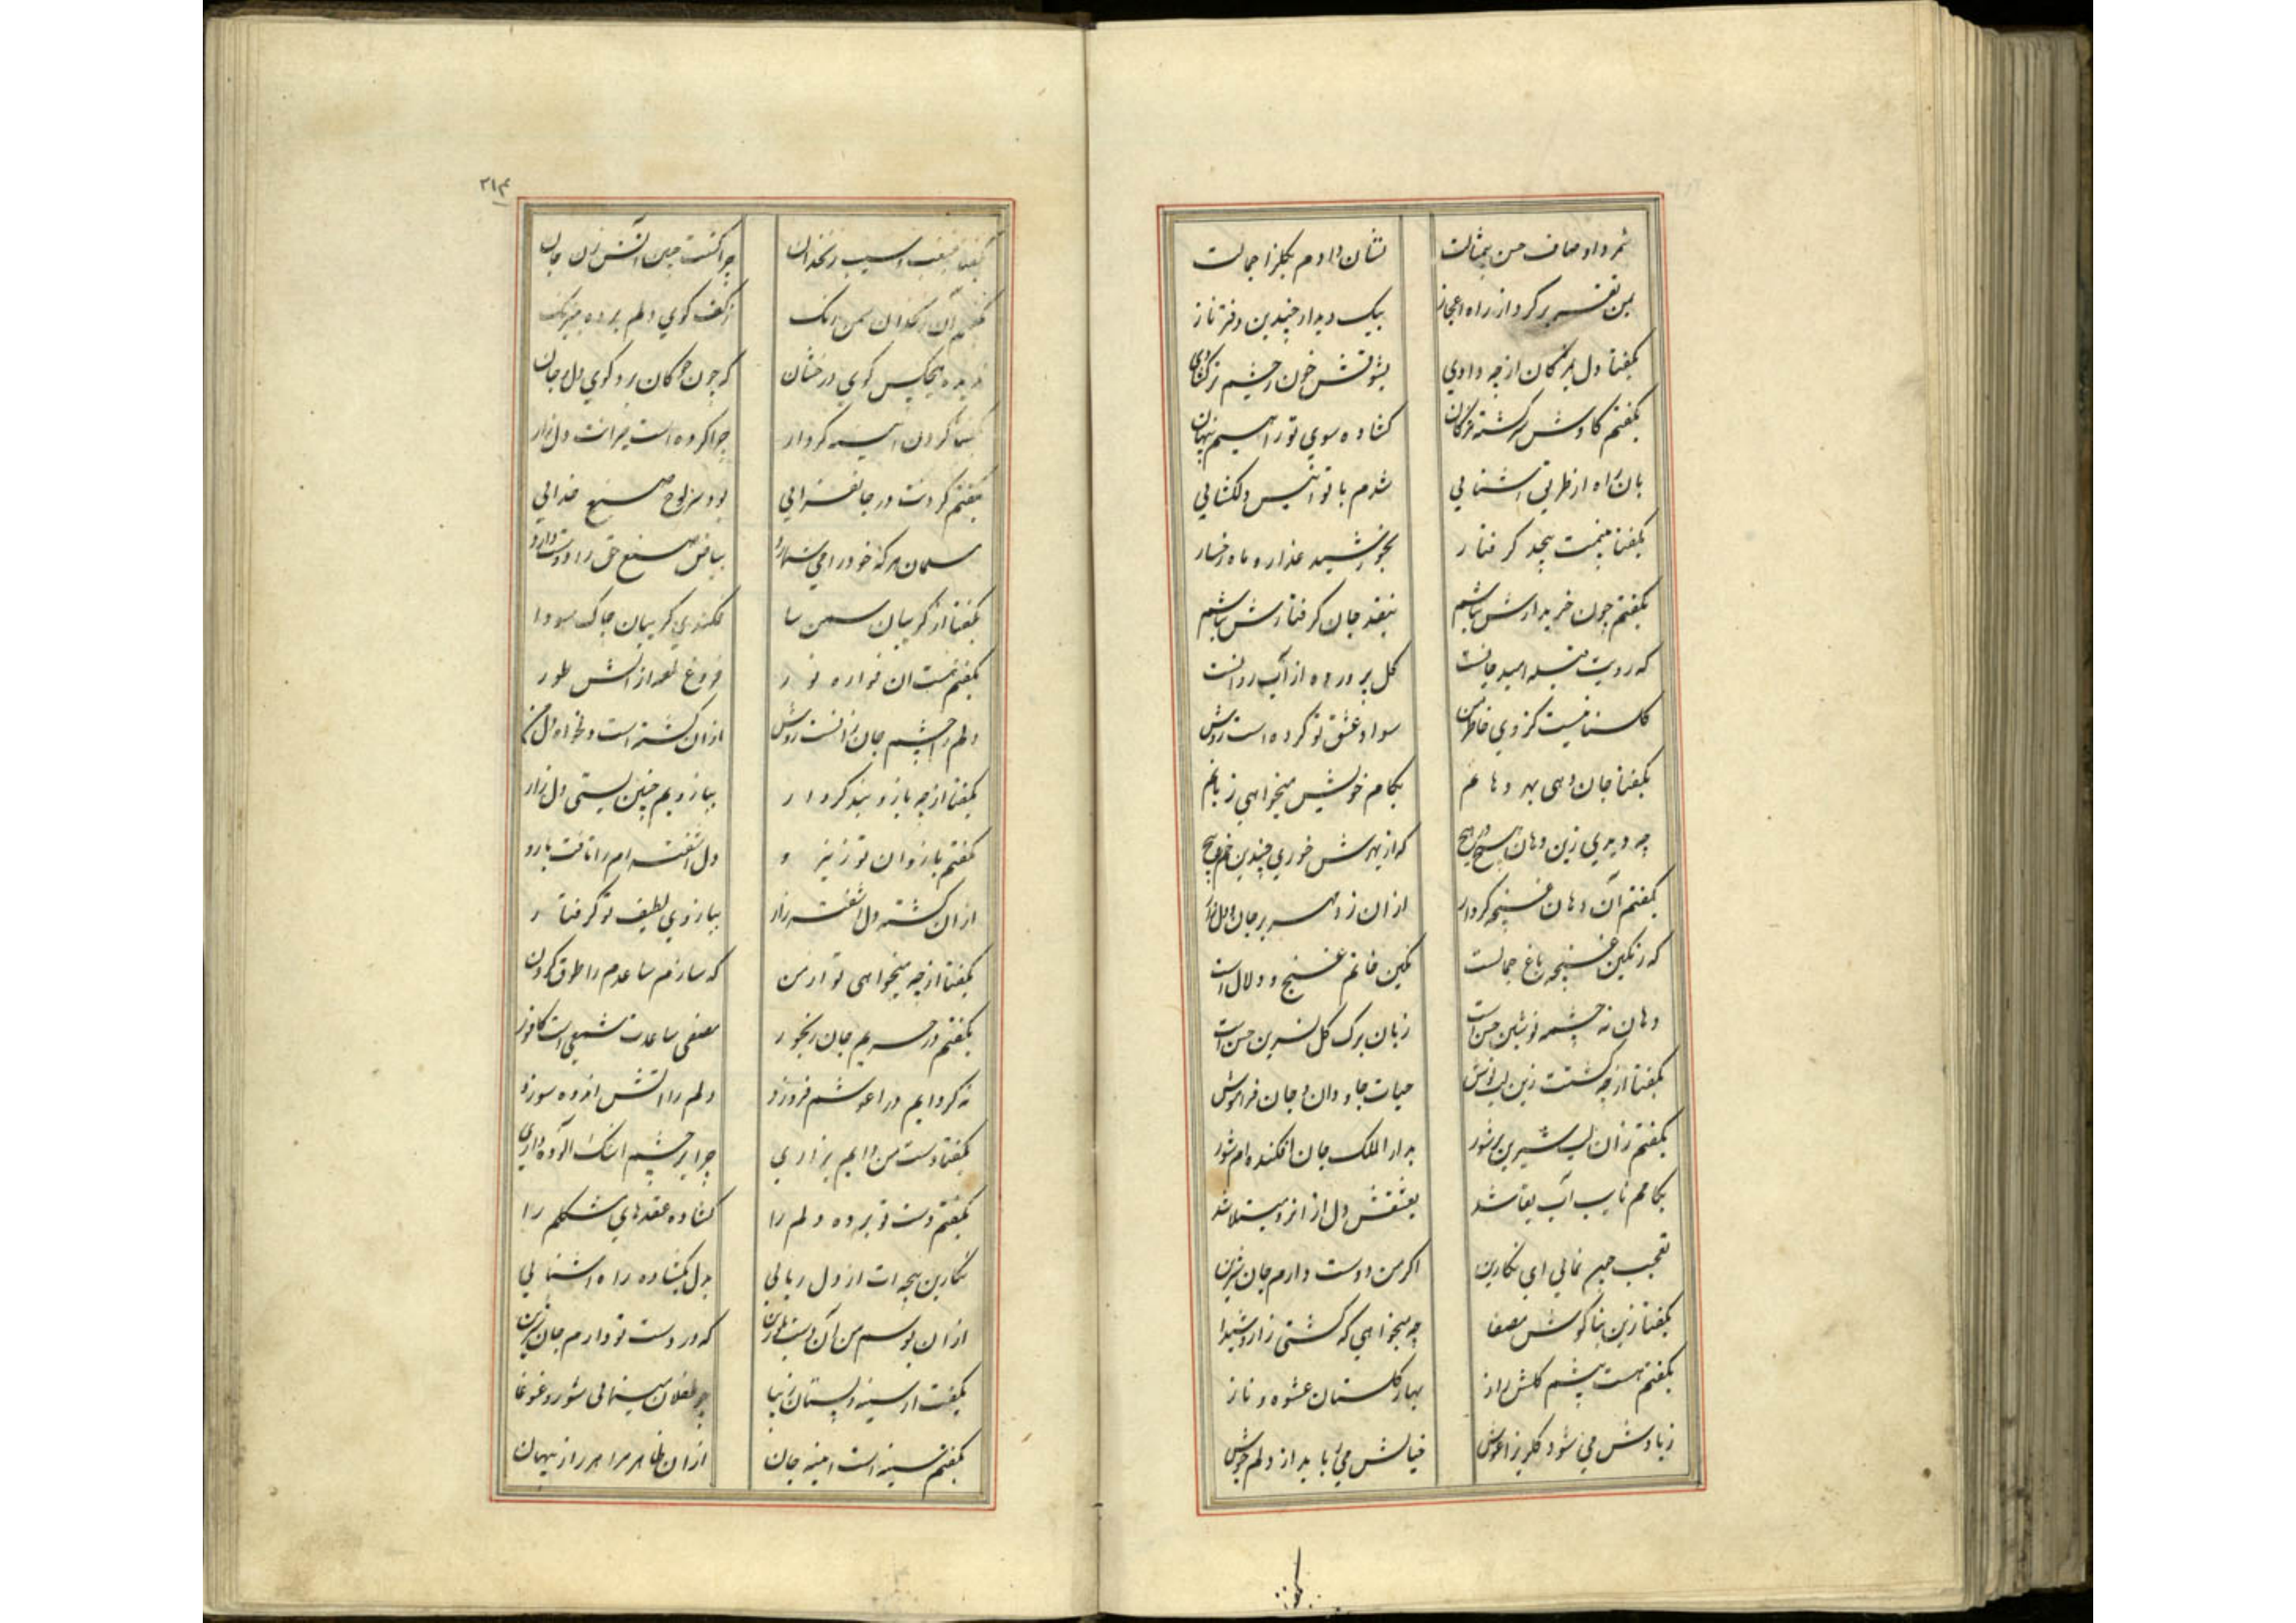 نشان دادم بگلزار جمالت
بمن تقریر کرد از راه اعجاز بیک دیدار چندین دفتر ناز
بگفتا دل بمژگان از چه دادی
بگفتم کاوش سرگشته مژگان گشاده سوی تو راهیم پنهان
بان راه از طریق آشنایی شدم با تو انیس دلگشایی
بگفتا گرفتار بخورشید عذار و ماه رخسار
بگفتم چون خریدارش نباشم بنقد جان گرفتارش نباشم
که رویت قبله امید جانست گل پرورده از آب روانست
سواد عشق تو کرده است روشن
بگفتا جان دهی بهر دهانم بکام خویش میخواهی زبانم
چه دیدی زین دهان که از بهرش خوری چندین خم و پیچ
بگفتم آن دهان غنچه کردار از آن زد مهر بر جان و دل زار
که رنگین غنچه باغ جمالست نگین خاتم غنج و دلال است
دهان نه چشمه نوشین حسن است زبان برگ گل نسرین حسن است
بگفتا از چه گشتت زین لب نوش حیات جاودان و جان فراموش
بگفتم زان لب شیرین پرشور بدار الملک جان افکنده‌ام شور
بکامم آب بقا شد بعشقش دل از انرو مبتلا شد
تعجب نمائی ای نگارین اگر من دوست دارم جان شیرین
بگفتا زین بناگوش مصفا چه میخواهی که گشتی زار و شیدا
بگفتم هست پیشم گلشن راز بهار گلستان عشوه و ناز
زیادش می شود گلریز آغوش خیالش می رباید از دلم هوش
بگفتا
۳۱۴
سیب زنخدان چرا گشت آتش زن جان
بگفتم آن زنخدان سمن رنگ ز کف گوی دلم برده
ندیده هیچکس گوی درخشان که چون چوگان برد گوی دل و جان
بگفتا گردن آیینه کردار چرا کرده است حیرانت دل زار
بگفتم گردنت در جانفزایی بود سرلوح صنع خدائی
مسلمان هرکه خود را می شمارد بیاض صنع حق را دوست دارد
بگفتا از گریبان سمن سا فکندی گریبان چاک سودا
بگفتم هست آن فواره نور فروغ لمعه از آتش طور
دلم را چشم جان زانست روشن
بگفتا از چه بازوبند کردار ببازویم چنین بستی دل زار
بگفتم بازوان تو ز نیرو دل آشفته‌ام را تافت بازو
از آن گشته دل آشفته زار ببازوی لطیف تو گرفتار
بگفتا از چه میخواهی تو از من که سازم ساعدم را طوق گردن
بگفتم در حریم جان رنجور مصفی ساعدت شمعی است کافور
نه گر دایم در آغوشم فروزد دلم را آتش اندوه سوزد
بگفتا دست من دایم بزاری چرا بر چشم اشک آلوده داری
بگفتم دست تو برده دلم را گشاده عقدهای مشکلم را
نگارین پنجه‌ات از دل ربائی بدل بگشاده راه آشنائی
از آن بوسم من آن که در دست تو دارم جان شیرین
بگفت از سینه و پستان زیبا چو طفلان مینمائی شور و غوغا
بگفتم سینه‌ات آیینه جان از آن ظاهر مرا هر راز پنهان